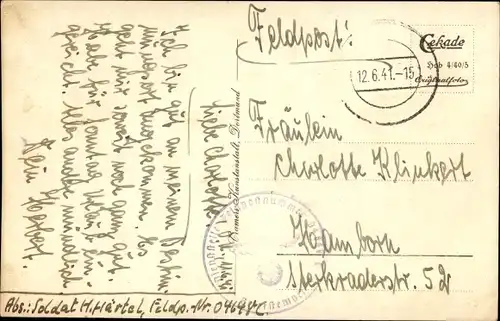 Feldpost!
Cekade
Hab 4/40/5
Originalfoto
12.6.41.-15
Fräulein
Charlotte Klinkert
Hamborn
Sterkraderstr. 52
Liebe Charlotte!
Ich bin gut an meinem Bestim-
mungsort angekommen. Es
geht mir soweit noch ganz gut.
Habe für Sonntag Urlaub ein-
gereicht. Alles andre mündlich
Dein Herbert.
Kunstanstalt, Dortmund
Abs.: Soldat H. Härtel, Feldp.-Nr.